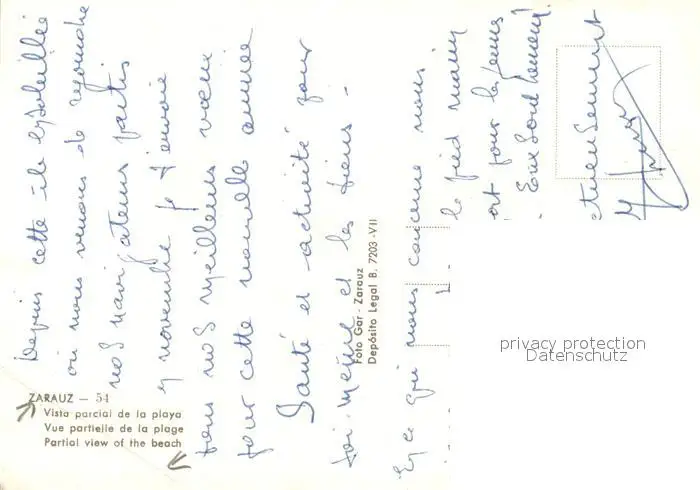 Depuis cette île ensoleillée
où nous venons de rejoindre
nos navigateurs partis
en novembre je t'envoie
tous nos meilleurs vœux
pour cette nouvelle année
Santé et activité pour
toi-même et les tiens -
En ce qui nous concerne nous
le pied marin
est pour les jeunes
ZARAUZ — 54
Vista parcial de la playa
Vue partielle de la plage
Partial view of the beach
Foto Gar - Zarauz
Depósito Legal B. 7203 -VII
privacy protection
Datenschutz